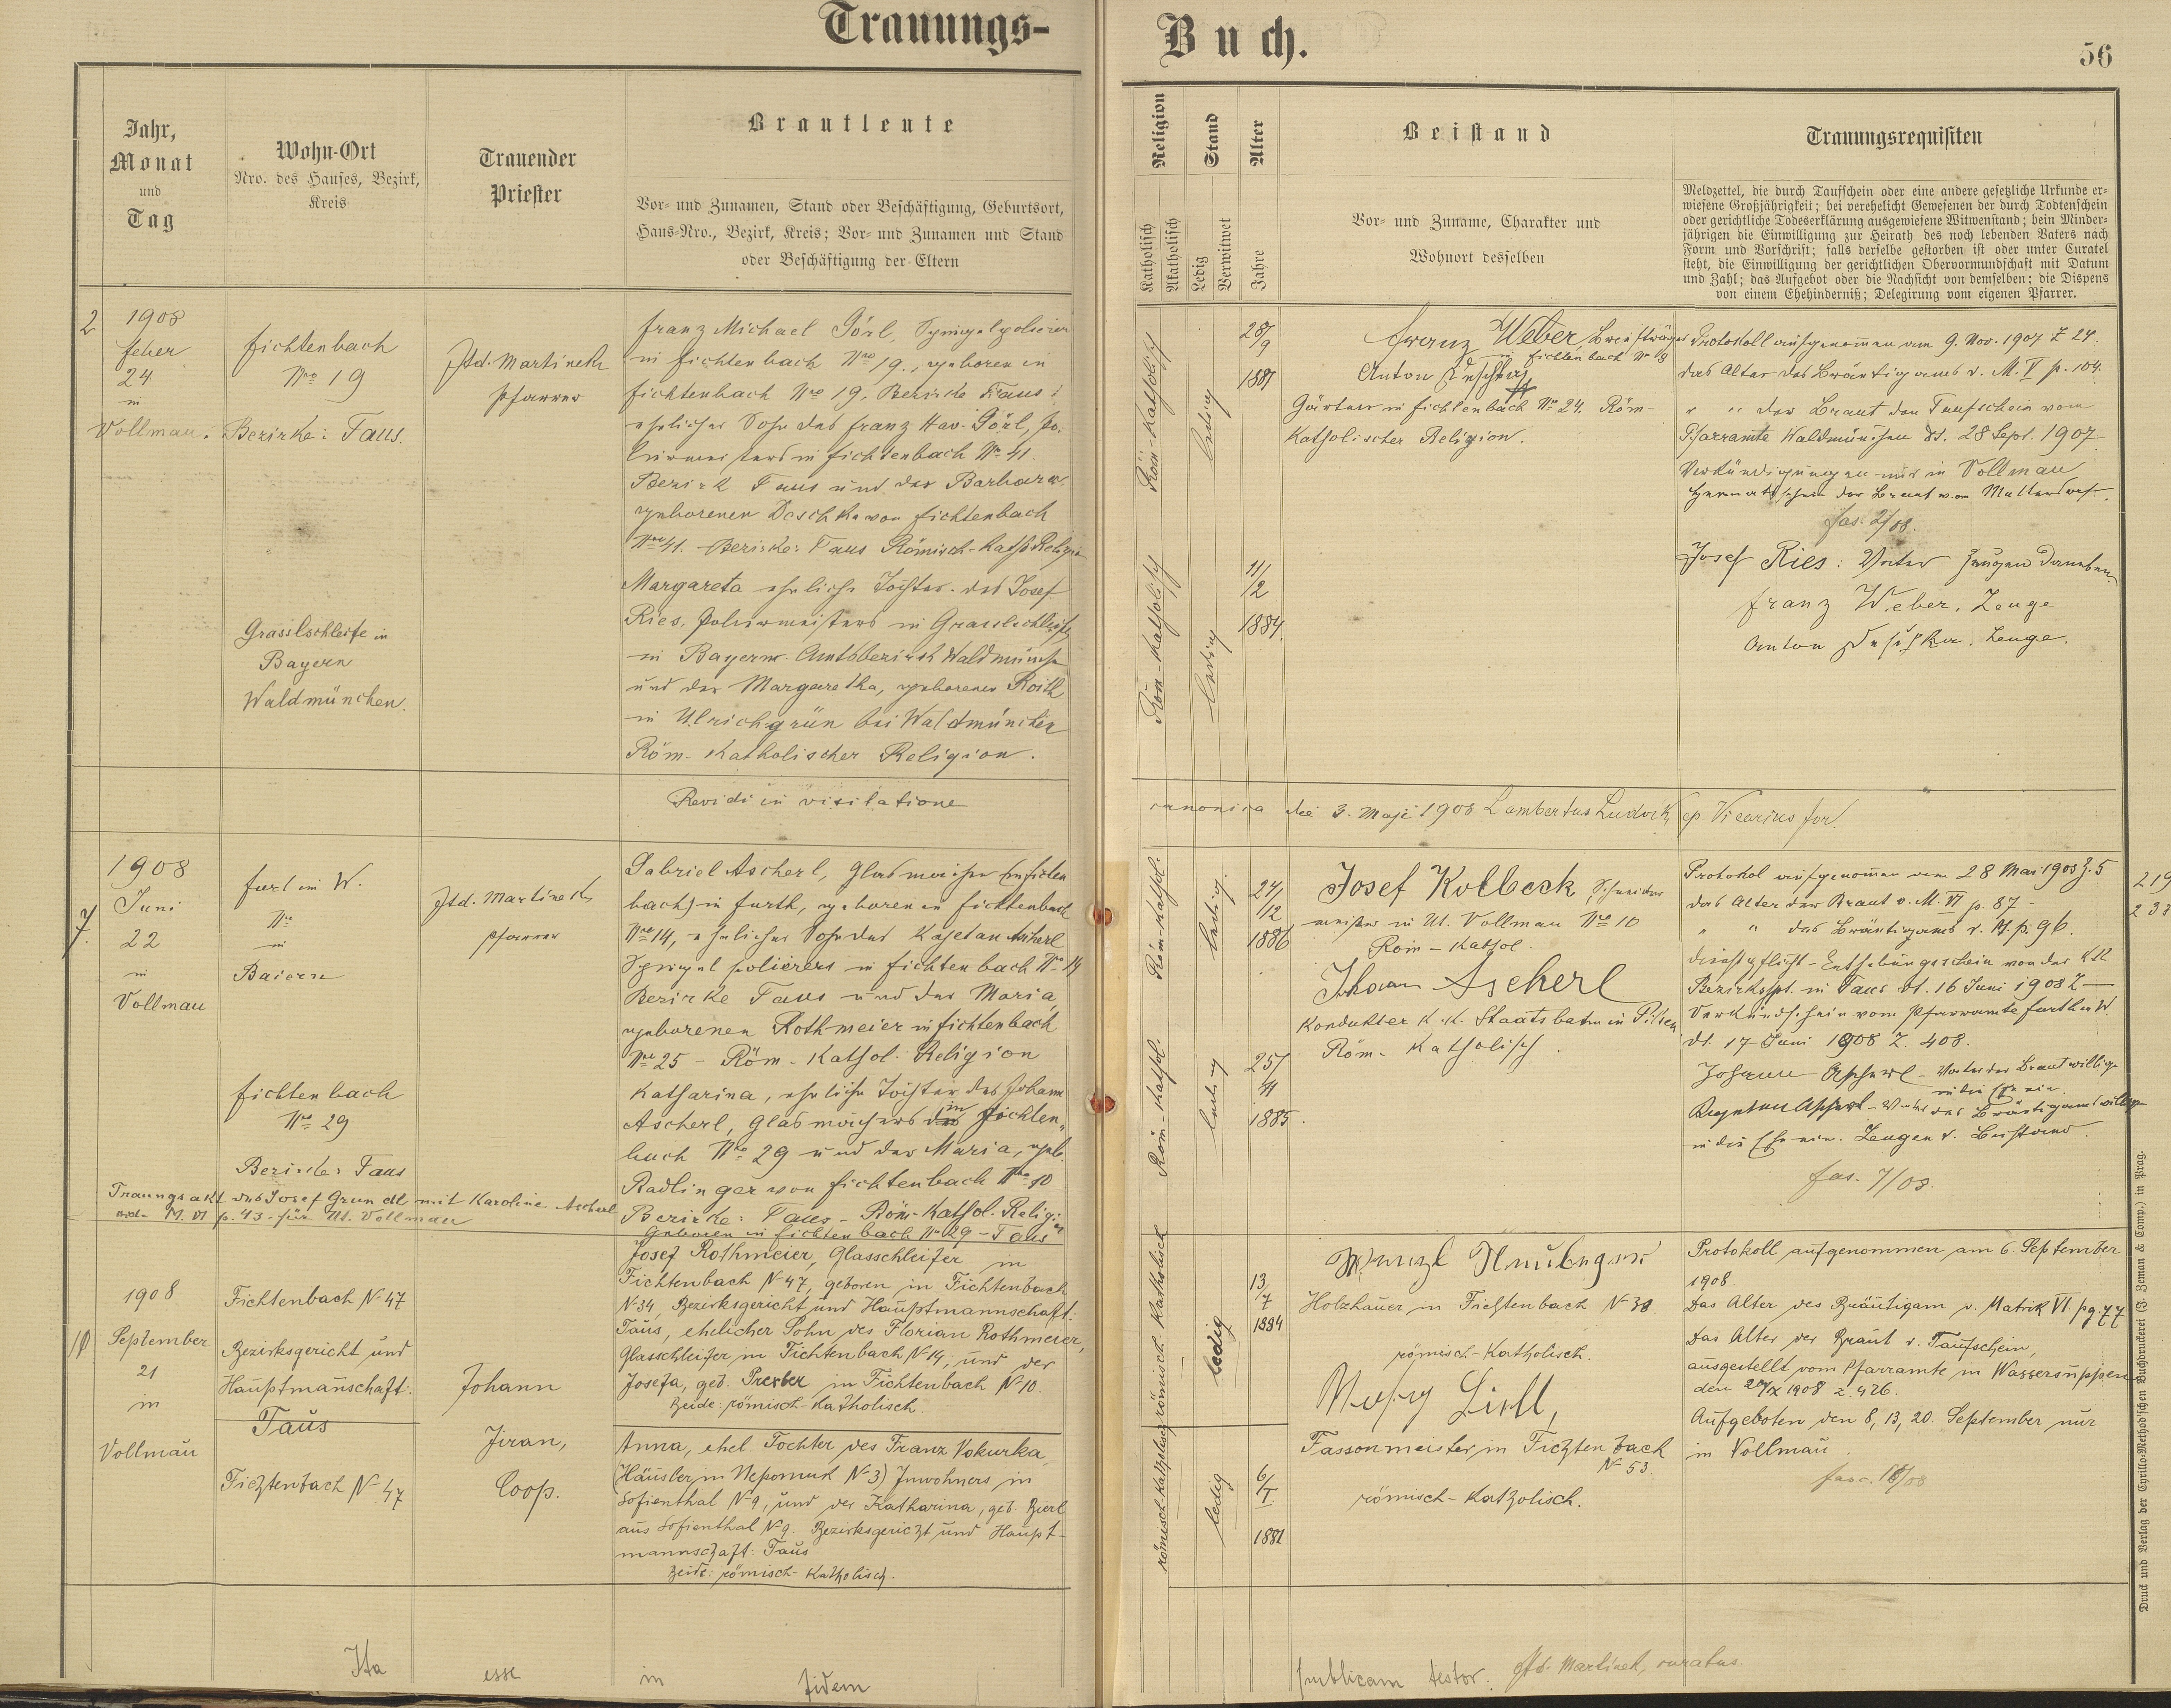 Trauungs-
Jahr,
Monat
und
Tag
Wohn-Ort
Nro. des Hauses, Bezirk,
Kreis
Trauender
Priester
Brautleute
Vor- und Zunamen, Stand oder Beschäftigung, Geburtsort,
Haus-Nro., Bezirk, Kreis; Vor- und Zunamen und Stand
oder Beschäftigung der Eltern
2
1908
feber
24
in
Vollmau.
Fichtenbach
Nro 19
Bezirke: Taus.
Ftd. Martinek
Pfarrer
Franz Michael Görl, Spiegelpolierer
in Fichtenbach Nro 19., geboren in
Fichtenbach Nro 19. Bezirke Taus;
ehelicher Sohn des Franz Xav. Görl, Po-
liermeisters in Fichtenbach No 41.
Bezirk Taus und der Barbara
geborenen Deschka von Fichtenbach
Nro 41. Bezirke: Taus Römisch-Kath. Religion
Grasslschleife in
Bayern
Waldmünchen.
Margareta eheliche Tochter des Josef
Ries, Poliermeisters in Grasslschleife
in Bayern Amtsbezirk Waldmünchen
und der Margaretha, geborenen Roith
in Ulrichgrün bei Waldmünchen
Röm-Katholischer Religion.
Revidi in visitatione
7
1908
Juni
22
in
Vollmau
furt im W.
Nro
in
Baiern
Ftd. Martinek
Pfarrer
Gabriel Ascherl, Glasmacher (in Fichten
bach) in Furth, geboren in Fichtenbach
Nro 14, ehelicher Sohn des Kajetan Ascherl
Spiegelpolierers in Fichtenbach No 14
Bezirke Taus und der Maria,
geborenen Rothmeier in Fichtenbach
No 25 - Röm-Kathol. Religion
Fichtenbach
No 29
Bezirke: Taus
Katharina, eheliche Tochter des Johann
Ascherl, Glasmachers in Fichten-
bach No 29 und der Maria, geb.
Radlinger von Fichtenbach No 10
Bezirke: Taus - Röm-Kathol. Religion
Geboren in Fichtenbach No 29 - Taus
Trauungsakt des Josef Grundl mit Karoline Ascherl
vide M. VI p. 43 - für Ut. Vollmau
10
1908
September
21
in
Vollmau
Fichtenbach No 47
Bezirksgericht und
Hauptmannschaft:
Taus
Fichtenbach No 47
Johann
Jiran,
Coop.
Josef Rothmeier, Glasschleifer in
Fichtenbach No 47, geboren in Fichtenbach
No 34 Bezirksgericht und Hauptmannschaft:
Taus, ehelicher Sohn des Florian Rothmeier,
Glasschleifer in Fichtenbach No 14, und der
Josefa, geb. Prexber in Fichtenbach No 10.
Beide: römisch-katholisch.
Anna, ehel. Tochter des Franz Vokurka,
(Häusler in Nepomuk No 3) Inwohners in
Sofienthal No 9, und der Katharina, geb. Bierl
aus Sofienthal No 9. Bezirksgericht und Haupt-
mannschaft: Taus
Beide: römisch-katholisch.
Ita esse in fidem
Buch.
56
Religion
Katholisch
Akatholisch
Stand
Ledig
Verwitwet
Alter
Jahre
Beistand
Vor- und Zuname, Charakter und
Wohnort desselben
Trauungsrequisiten
Meldzettel, die durch Taufschein oder eine andere gesetzliche Urkunde er-
wiesene Großjährigkeit; bei verehelicht Gewesenen der durch Todtenschein
oder gerichtliche Todeserklärung ausgewiesene Witwenstand; bein Minder-
jährigen die Einwilligung zur Heirath des noch lebenden Vaters nach
Form und Vorschrift; falls derselbe gestorben ist oder unter Curatel
steht, die Einwilligung der gerichtlichen Obervormundschaft mit Datum
und Zahl; das Aufgebot oder die Nachsicht von demselben; die Dispens
von einem Ehehinderniß; Delegirung vom eigenen Pfarrer.
Röm-Katholisch
ledig
28/
9
1881
Franz Weber Briefträger
in Fichtenbach No 8
Anton Deschka
Gärtner in Fichtenbach No 24. Röm-
Katholischer Religion.
Protokoll aufgenommen am 9. Nov. 1907 Z 24.
das Alter des Bräutigams v. M. V p. 104.
" " der Braut den Taufschein vom
Pfarramte Waldmünchen dt. 28 Sept. 1907
Verkündigungen nur in Vollmau
Heimatschein der Braut von
fas. 2/08.
Josef Ries: Vater
Franz Weber, Zeuge
Anton Deschka. Zeuge.
Röm-Katholisch
ledig
11/
2
1884.
canonica die 3. Maji 1908 Lambertus Ludvík, ep. Vicarius for.
Röm-Kathol.
ledig.
24/
12
1886
Josef Kolbeck, Schneider
meister in Ut. Vollmau Nro 10
Röm-Kathol.
Johann Ascherl
Kondukter K. K. Staatsbahn in Pilsen
Röm-Katholisch.
Röm-Kathol.
ledig
25/
11
1885.
Protokol aufgenommen vom 28 Mai 1908 Z. 5
das Alter der Braut v. M. VI p. 87 -
" " des Bräutigams v. M. p. 96.
Dienstpflicht-Enthebungsschein von der KK
Bezirkshpt. in Taus dt. 16 Juni 1908 Z —
Verkündschein vom Pfarramte Furth i W.
dt. 17 Juni 1908 Z. 408.
Johann Ascherl - Vater der Braut willige
in die Ehe ein.
Kajetan Ascherl - Vater des Bräutigams willige
in die Ehe ein. Zeugen v. Beistand.
fas. 7/08.
219
238
römisch-katholisch
ledig
13/
7
1884
Wenzl Neubauer
Holzhauer in Fichtenbach No 38.
römisch-katholisch.
Lidl,
Fassonmeister in Fichtenbach
No 53.
römisch-katholisch.
römisch-katholisch
ledig
6/
I.
1881
Protokoll aufgenommen am 6. September
1908.
Das Alter des Bräutigam v. Matrik VI. pg. 77
Das Alter der Braut v. Taufschein,
ausgestellt vom Pfarramte in Wassersuppen
den 20/X 1908 z. 426.
Aufgeboten den 8, 13, 20. September nur
in Vollmau.
fasc. 10/08
publicam testor. Ftd. Martinek, curatus.
Druck und Verlag der Cyrillo-Method'schen Buchdruckerei (J. Zeman & Comp.) in Prag.